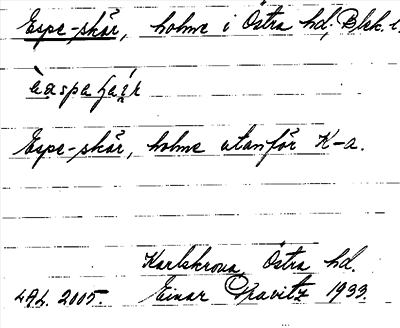 Espe-skär, holme i Östra hd, Blek. l.
Espe-skär, holme utanför K-a.
Karlskrona, Östra hd.
LAL. 2005. Einar Kravitz 1933.